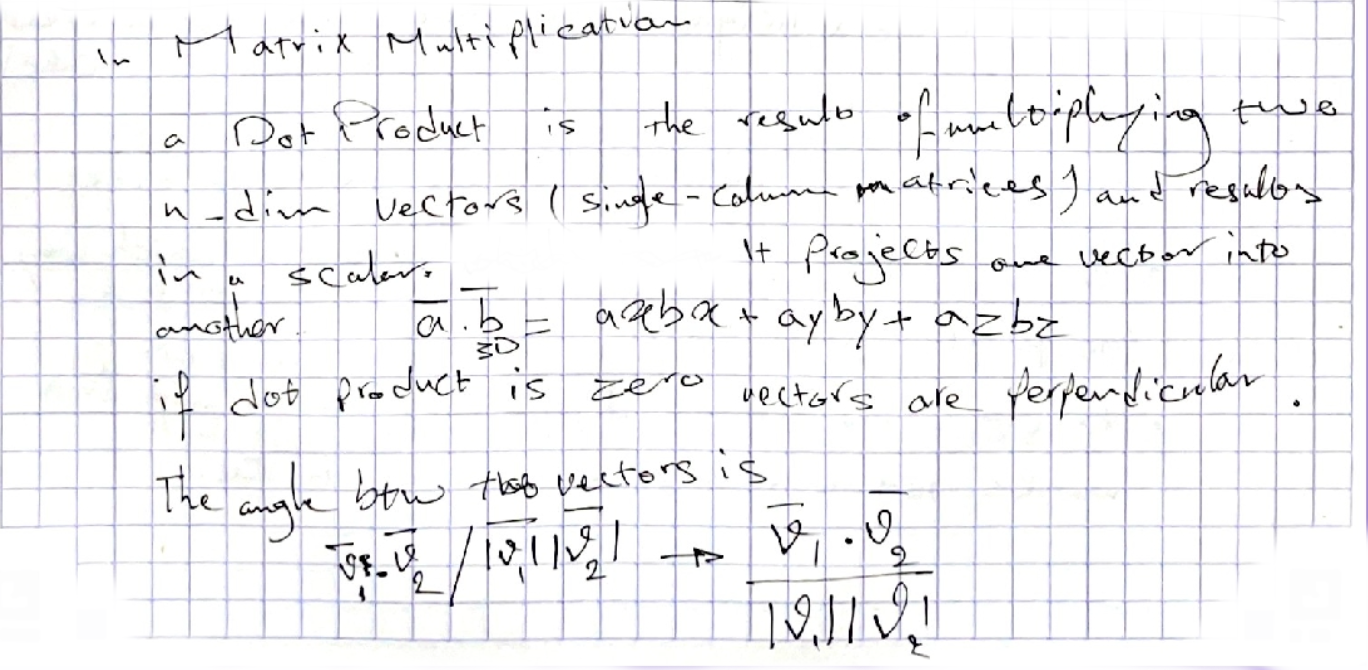 in Matrix Multiplication
a Dot Product is the result of multiplying two
n-dim vectors (single-column matrices) and results
in a scalar. It projects one vector into
another. a̅.b̅ 3D = axbx + ayby + azbz
if dot product is zero vectors are perpendicular.
The angle btw two vectors is
v̅₁.v̅₂/|v̅₁||v̅₂| → v̅₁.v̅₂/|v₁||v₂|